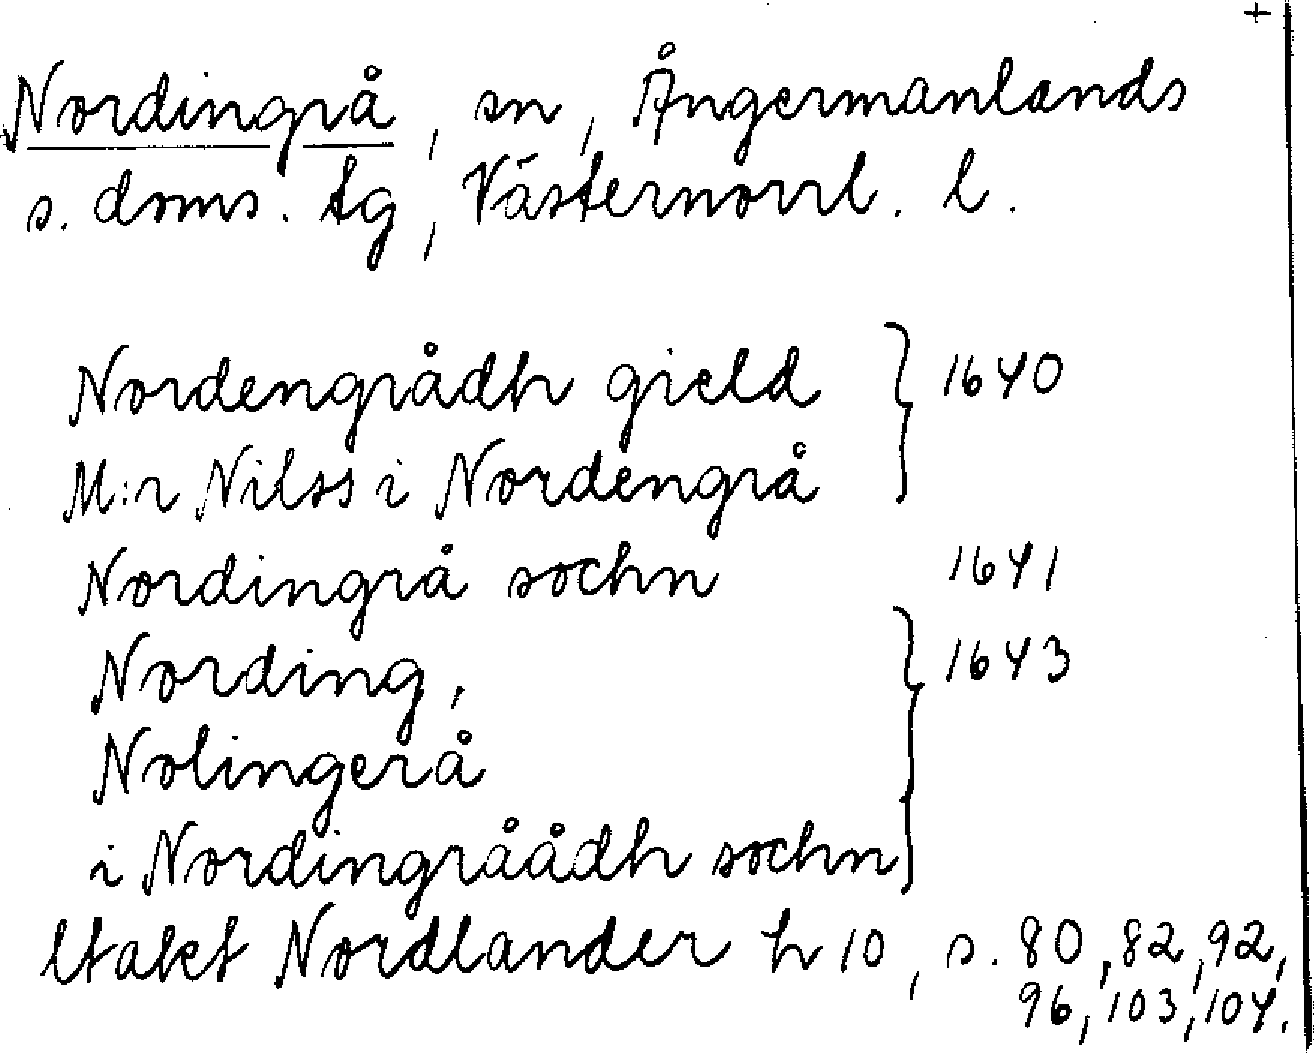 +
Nordingrå, sn, Ångermanlands
s. doms. tg, Västernorrl. l.
Nordengrådh gield } 1640
M:r Nilss i Nordengrå
Nordingrå sochn 1641
Nording, } 1643
Nolingerå
i Nordingråådh sochn
Utakt Nordlander h 10, s. 80, 82, 92,
96, 103, 104.